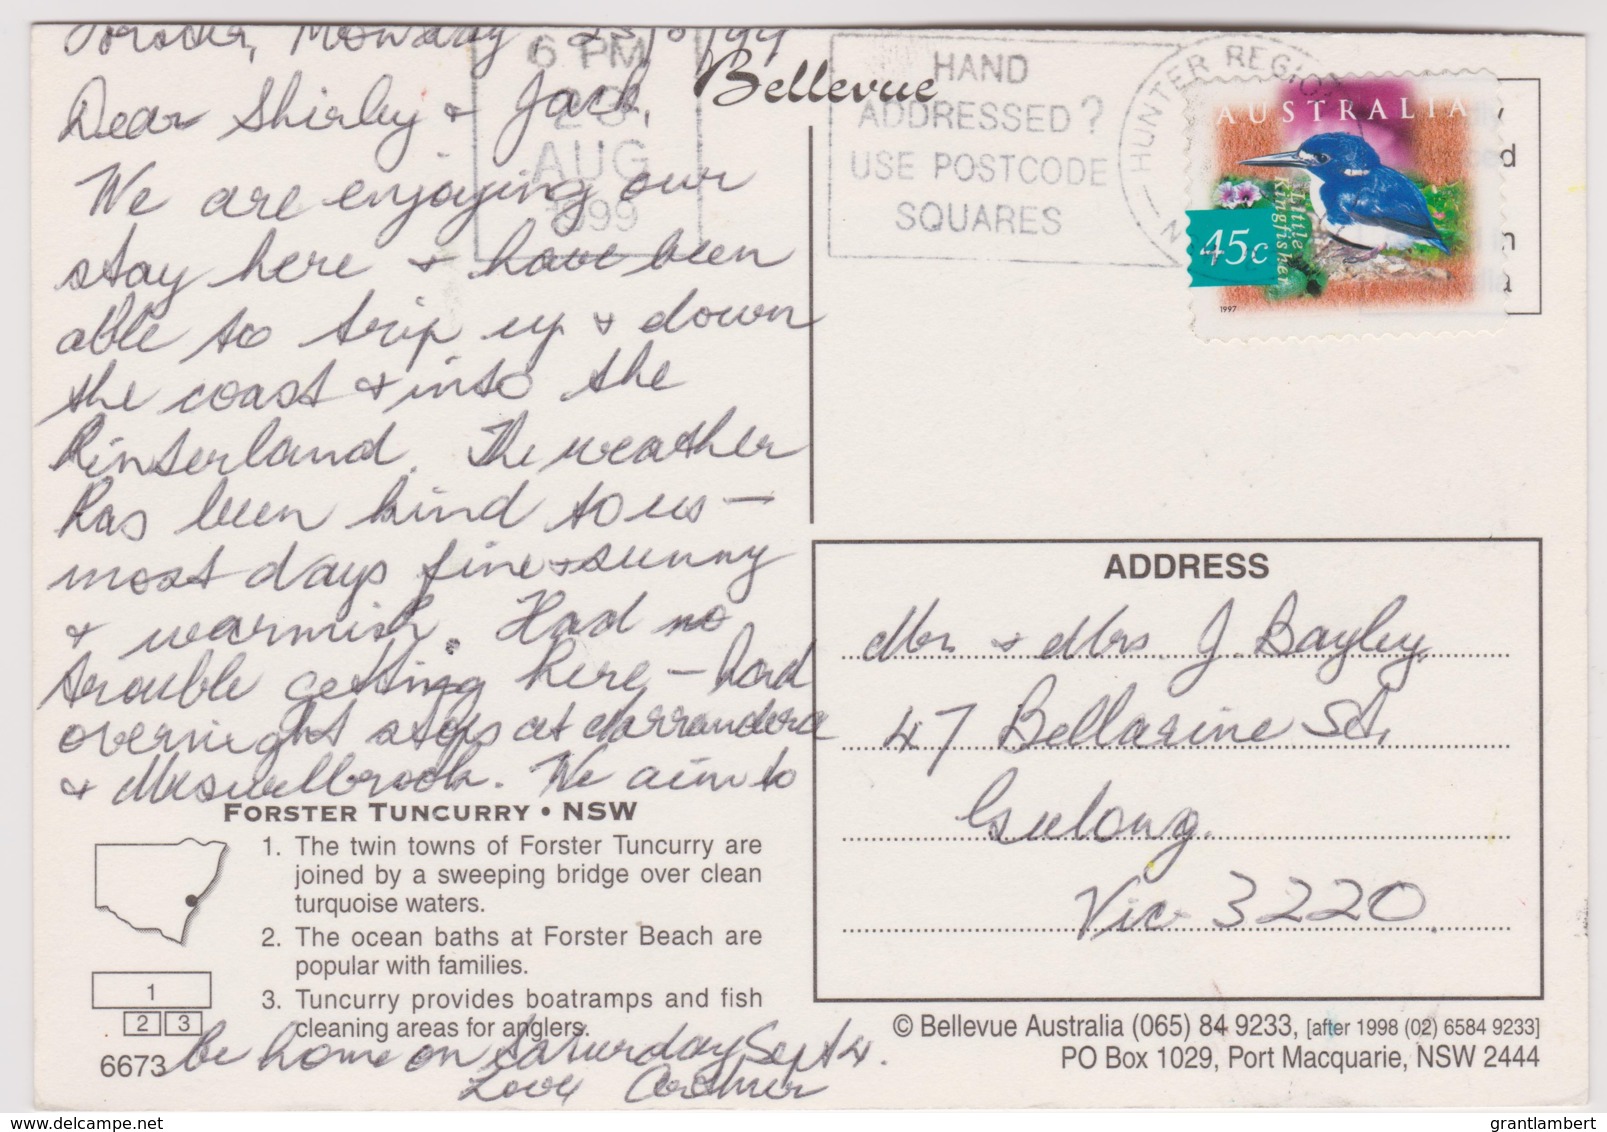 Forster, Monday, 23/8/99
Dear Shirley & Jack,
We are enjoying our
stay here & have been
able to trip up & down
the coast & into the
Hinterland. The weather
has been kind to us —
most days fine & sunny
& warmish. Had no
trouble getting here, — had
overnight stops at Narrandera
& Muswellbrook. We aim to
be home on Saturday Sept 4.
Love
Bellevue
6 PM
23
AUG
1999
HAND
ADDRESSED?
USE POSTCODE
SQUARES
HUNTER REGION
AUSTRALIA
Little
Kingfisher
45c
1997
ADDRESS
Mr. & Mrs. J. Bayley,
47 Bellarine St,
Geelong.
Vic 3220
FORSTER TUNCURRY • NSW
1. The twin towns of Forster Tuncurry are
joined by a sweeping bridge over clean
turquoise waters.
2. The ocean baths at Forster Beach are
popular with families.
3. Tuncurry provides boatramps and fish
cleaning areas for anglers.
1
2 3
6673
© Bellevue Australia (065) 84 9233, [after 1998 (02) 6584 9233]
PO Box 1029, Port Macquarie, NSW 2444
grantlambert